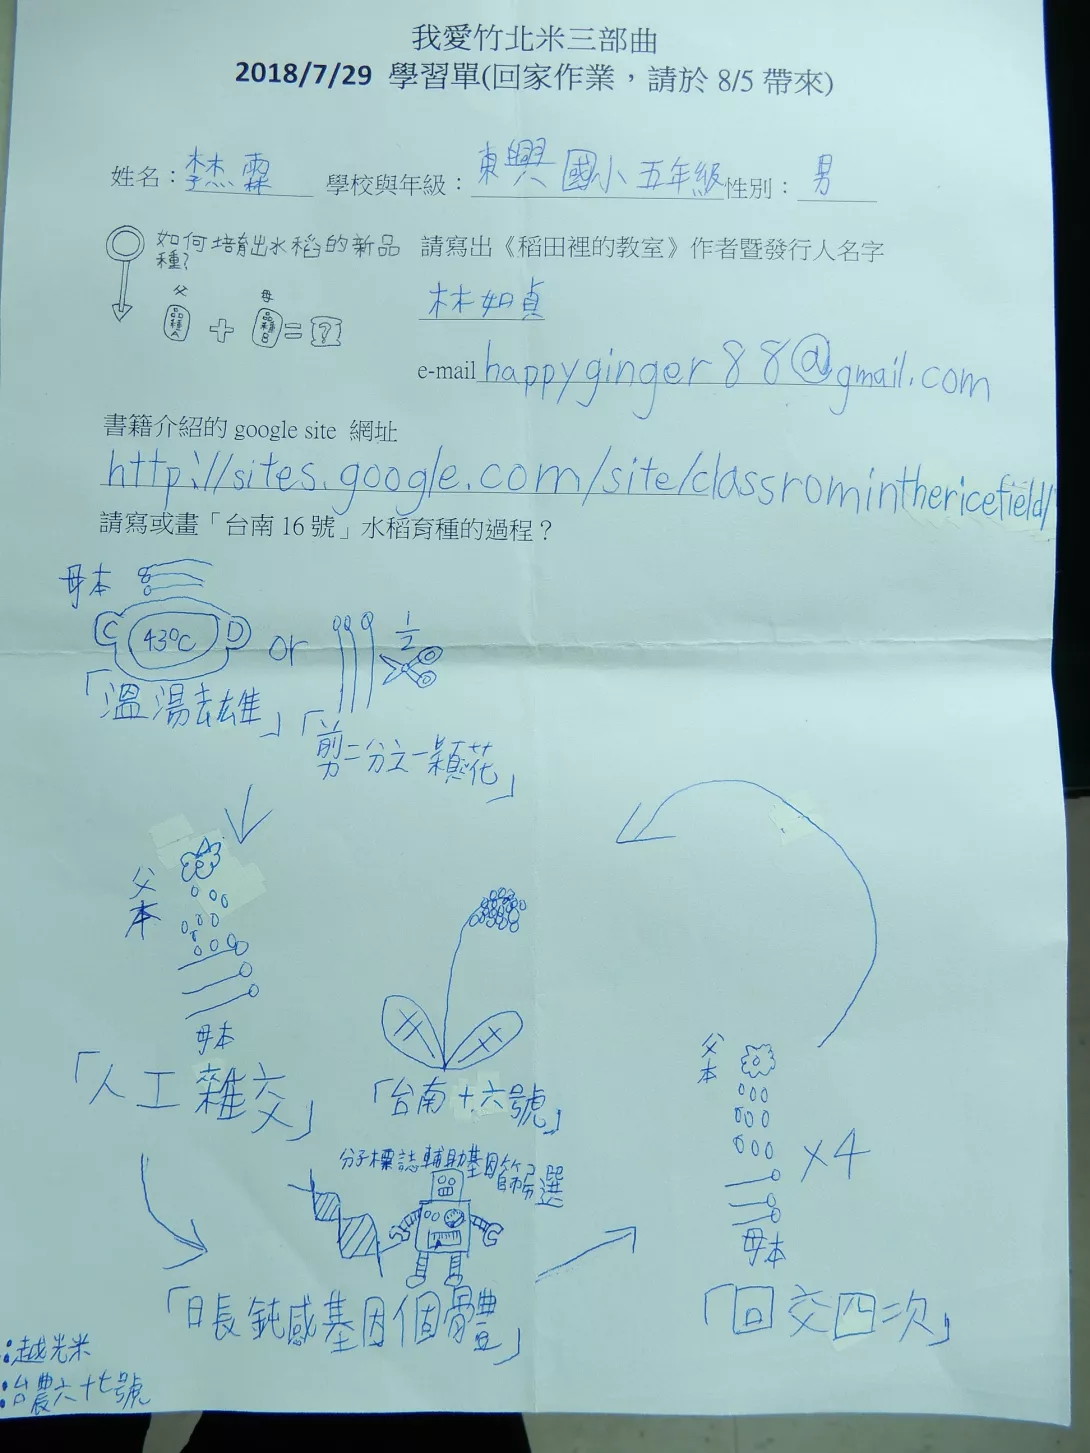 我愛竹北米三部曲
2018/7/29 學習單(回家作業，請於 8/5 帶來)
姓名：李杰霖 學校與年級：東興國小五年級 性別：男
如何培育出水稻的新品種?
父 母
品種A + 品種B = ?
請寫出《稻田裡的教室》作者暨發行人名字
林如貞
e-mail happyginger88@gmail.com
書籍介紹的 google site 網址
http://sites.google.com/site/classrominthericefield/
請寫或畫「台南 16 號」水稻育種的過程？
母本
43°C or 1/2
「溫湯去雄」
「剪二分之一穎花」
父本
母本
「人工雜交」
「台南十六號」
分子標誌輔助基因篩選
「日長鈍感基因個體」
父本
×4
母本
「回交四次」
:越光米
:台農六十七號